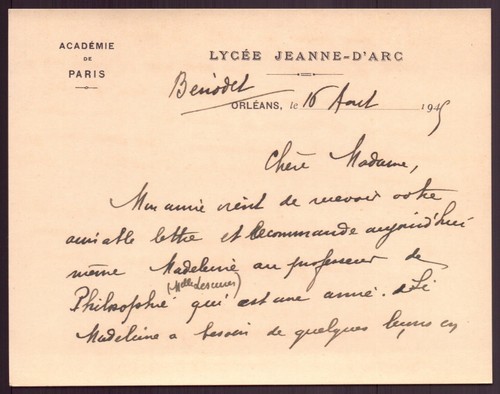 ACADÉMIE
DE
PARIS
LYCÉE JEANNE-D'ARC
Bénodet
ORLÉANS, le 16 Aout 1945
Chère Madame,
Mon amie vient de recevoir votre
aimable lettre et recommande aujourd'hui
même Madeleine au professeur de
(Melle Lescures)
Philosophie qui est une amie. Si
Madeleine a besoin de quelques leçons en